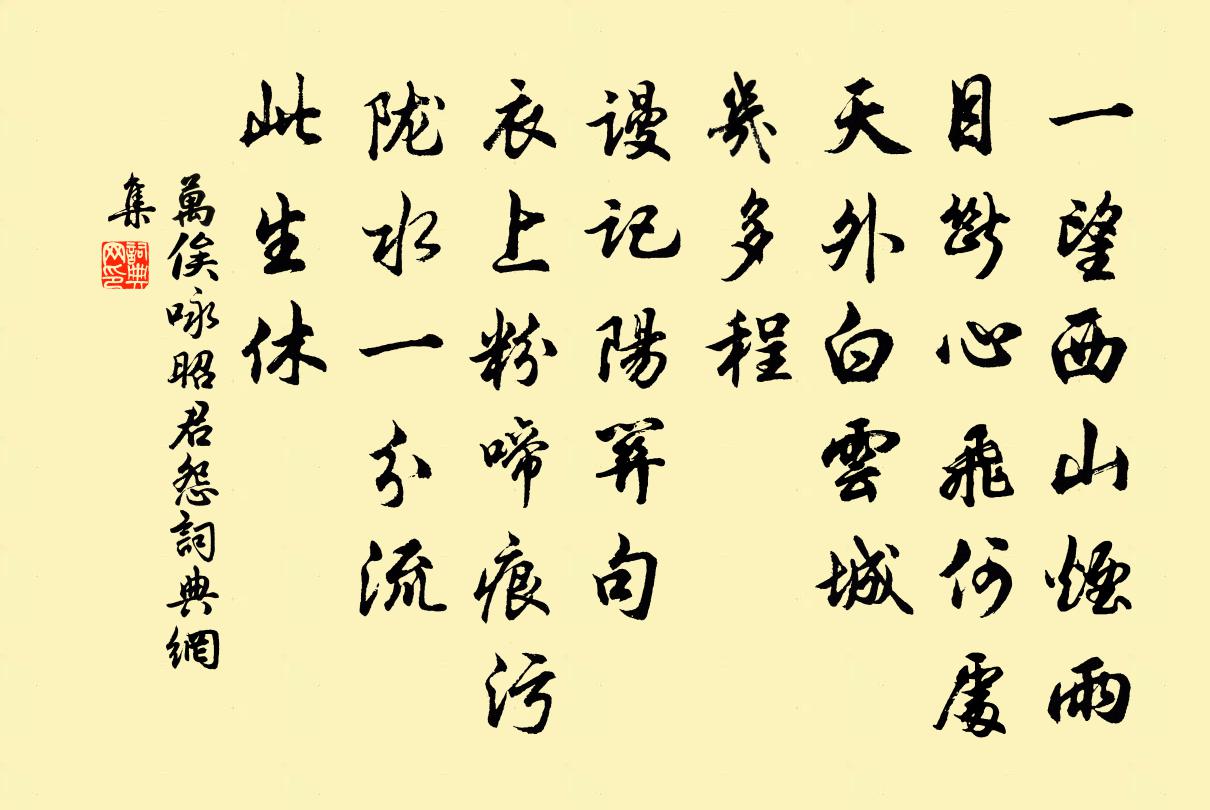 一望西山煙雨
目断心飛何處
天外白雲城
幾多程
谩记陽関句
衣上粉啼痕污
陇水一分流
此生休
萬俟咏昭君怨詞典網
集
詞典
网印